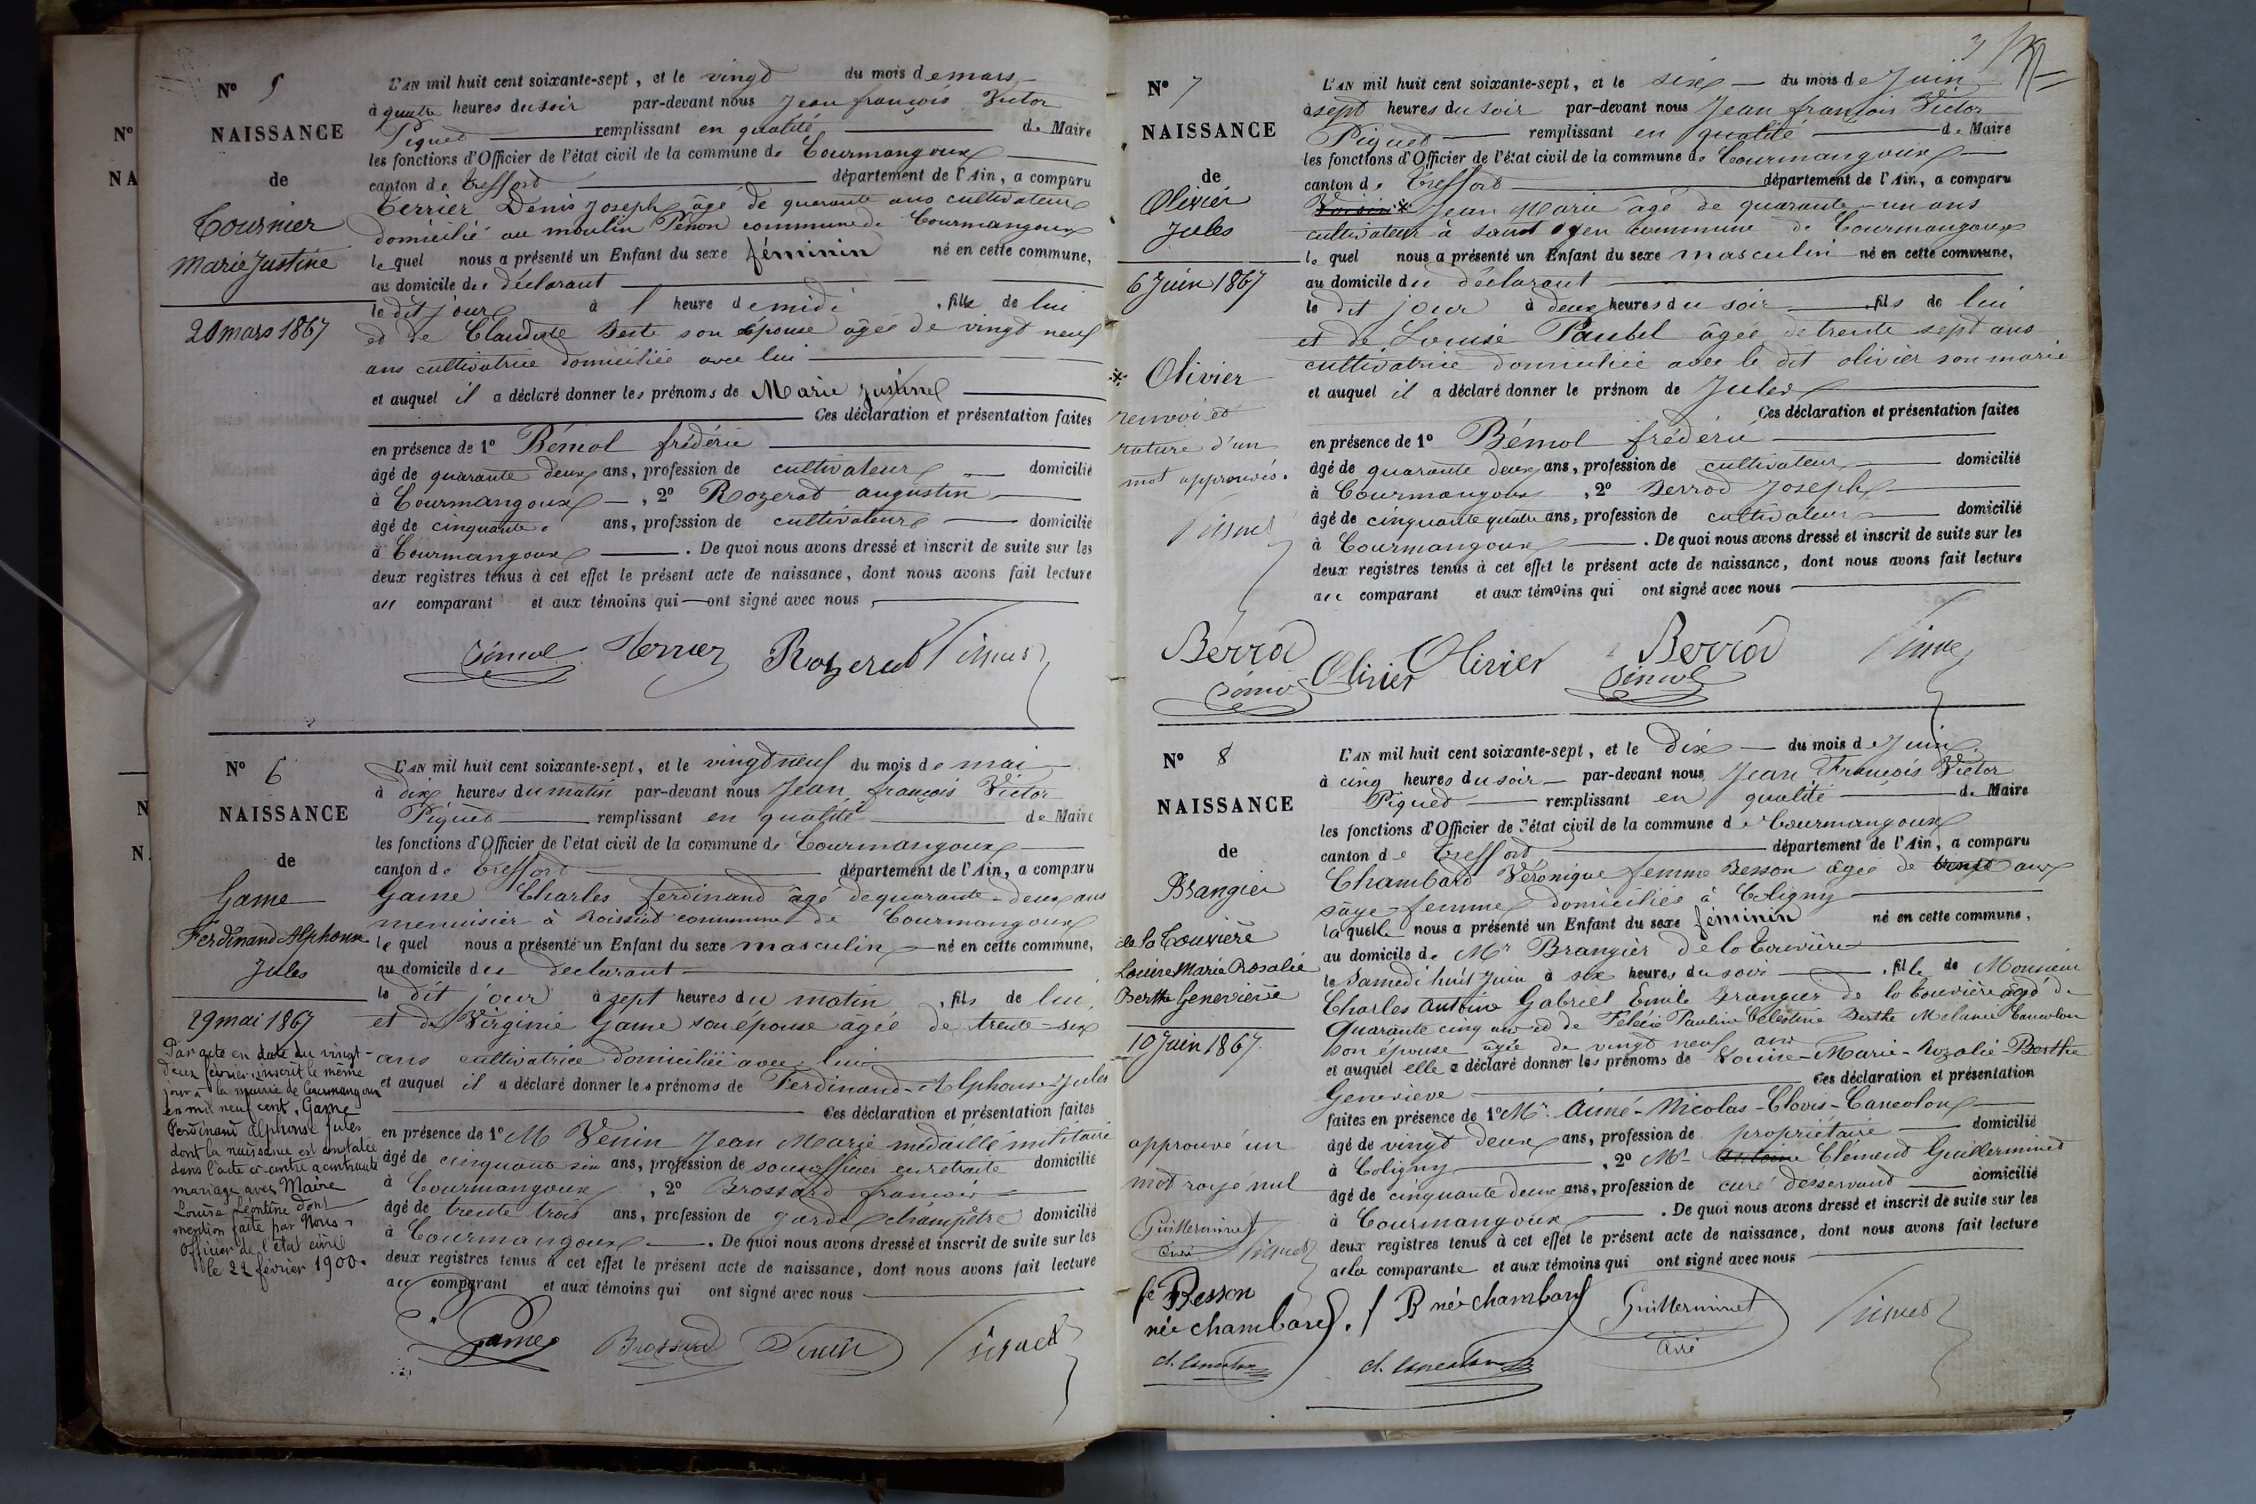 N° 5
NAISSANCE
de
Tournier
Marie Justine
20 mars 1867
L'AN mil huit cent soixante-sept, et le vingt du mois de mars
à quatre heures du soir par-devant nous Jean françois Victor
Piquet remplissant en qualité de Maire
les fonctions d'Officier de l'état civil de la commune de Courmangoux
canton de Treffort département de l'Ain, a comparu
Terrier Denis Joseph âgé de quarante ans cultivateur
domicilié au moulin Penon commune de Courmangoux
lequel nous a présenté un Enfant du sexe féminin né en cette commune,
au domicile du déclarant
le dit jour à 1 heure de midi, fille de lui
et de Claudine son épouse âgée de vingt neuf
ans cultivatrice domiciliée avec lui
et auquel il a déclaré donner les prénoms de Marie Justine
Ces déclaration et présentation faites
en présence de 1° Bémol frédéric
âgé de quarante deux ans, profession de cultivateur domicilié
à Courmangoux, 2° Rozerat augustin
âgé de cinquante ans, profession de cultivateur domicilié
à Courmangoux. De quoi nous avons dressé et inscrit de suite sur les
deux registres tenus à cet effet le présent acte de naissance, dont nous avons fait lecture
au comparant et aux témoins qui ont signé avec nous,
Bémol Terrier Rozerat Piquet
N° 6
NAISSANCE
de
Game
Ferdinand Alphonse
Jules
29 mai 1867
Par acte en date du vingt-
deux février, inscrit le même
jour à la mairie de Courmangoux
en mil neuf cent, Game
Ferdinand Alphonse Jules
dont la naissance est constatée
dans l'acte ci-contre a contracté
mariage avec Maire
Louise Léontine dont
mention faite par Nous,
Officier de l'état civil
le 22 février 1900.
L'AN mil huit cent soixante-sept, et le vingt neuf du mois de mai
à dix heures du matin par-devant nous Jean françois Victor
Piquet remplissant en qualité de Maire
les fonctions d'Officier de l'état civil de la commune de Courmangoux
canton de Treffort département de l'Ain, a comparu
Game Charles ferdinand âgé de quarante-deux ans
menuisier à Roissiat commune de Courmangoux
lequel nous a présenté un Enfant du sexe masculin né en cette commune,
au domicile du declarant
le dit jour à sept heures du matin, fils de lui
et de Virginie Game son épouse âgée de trente-six
ans cultivatrice domiciliée avec lui
et auquel il a déclaré donner les prénoms de Ferdinand-Alphonse-Jules
Ces déclaration et présentation faites
en présence de 1° M Venin Jean Marie médaillé militaire
âgé de cinquante six ans, profession de sous officier en retraite domicilié
à Courmangoux, 2° Brossard françois
âgé de trente trois ans, profession de garde champêtre domicilié
à Courmangoux. De quoi nous avons dressé et inscrit de suite sur les
deux registres tenus à cet effet le présent acte de naissance, dont nous avons fait lecture
au comparant et aux témoins qui ont signé avec nous
Game Brossard Venin Piquet
3
N° 7
NAISSANCE
de
Olivier
Jules
6 Juin 1867
※ Olivier
renvoi et
rature d'un
mot approuvés.
Piquet
L'AN mil huit cent soixante-sept, et le six du mois de Juin
à sept heures du soir par-devant nous Jean françois Victor
Piquet remplissant en qualité de Maire
les fonctions d'Officier de l'état civil de la commune de Courmangoux
canton de Treffort département de l'Ain, a comparu
Voisin ※ Jean Marie âgé de quarante-un ans
cultivateur à saint oyen commune de Courmangoux
lequel nous a présenté un Enfant du sexe masculin né en cette commune,
au domicile du déclarant
le dit jour à deux heures du soir, fils de lui
et de Louise Paubel âgée de trente sept ans
cultivatrice domiciliée avec le dit olivier son marie
et auquel il a déclaré donner le prénom de Jules
Ces déclaration et présentation faites
en présence de 1° Bémol frédéric
âgé de quarante deux ans, profession de cultivateur domicilié
à Courmangoux, 2° Berrod Joseph
âgé de cinquante quatre ans, profession de cultivateur domicilié
à Courmangoux. De quoi nous avons dressé et inscrit de suite sur les
deux registres tenus à cet effet le présent acte de naissance, dont nous avons fait lecture
au comparant et aux témoins qui ont signé avec nous
Berrod Olivier Olivier Berrod Piquet
Bémol Bémol
N° 8
NAISSANCE
de
Brangier
de la Touvière
Louise Marie Rosalie
Berthe Geneviève
10 Juin 1867
approuvé un
mot rayé nul
Guillerminet
Curé Piquet
fe Besson
née chambard
cl. Cancalon
L'AN mil huit cent soixante-sept, et le dix du mois de Juin
à cinq heures du soir par-devant nous Jean François Victor
Piquet remplissant en qualité de Maire
les fonctions d'Officier de l'état civil de la commune de Courmangoux
canton de Treffort département de l'Ain, a comparu
Chambard Véronique femme Besson âgée de trente ans
sage-femme domiciliée à Coligny
laquelle nous a présenté un Enfant du sexe féminin né en cette commune,
au domicile de Mr Brangier de la Touvière
le Samedi huit Juin à six heures du soir, fille de Monsieur
Charles Antoine Gabriel Emile Brangier de la Touvière âgé de
Quarante cinq ans et de Félécie Pauline Célestine Berthe Mélanie Cancalon
son épouse âgée de vingt neuf ans
et auquel elle a déclaré donner les prénoms de Louise-Marie-Rozalie-Berthe
Geneviève Ces déclaration et présentation
faites en présence de 1° Mr. Aimé-Nicolas-Clovis-Cancalon
âgé de vingt deux ans, profession de propriétaire domicilié
à Coligny, 2° Mr Antoine Clément Guillerminet
âgé de cinquante deux ans, profession de curé desservant domicilié
à Courmangoux. De quoi nous avons dressé et inscrit de suite sur les
deux registres tenus à cet effet le présent acte de naissance, dont nous avons fait lecture
à la comparante et aux témoins qui ont signé avec nous
f B née chambard Guillerminet Piquet
curé
cl. Cancalon